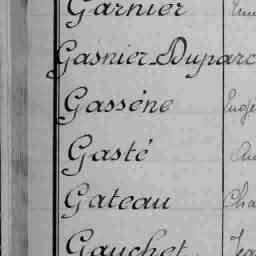 Garnier
Gasnier-Duparc
Gassène
Gasté
Gateau Cha
Gauchet Jea